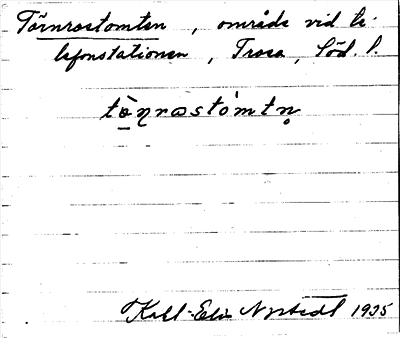 Törnrostomten, område vid te-
lefonstationen, Trosa, Söd. l.
tö̀ṇrɷstòmtn̥
Karl-Eric Nystedt 1935